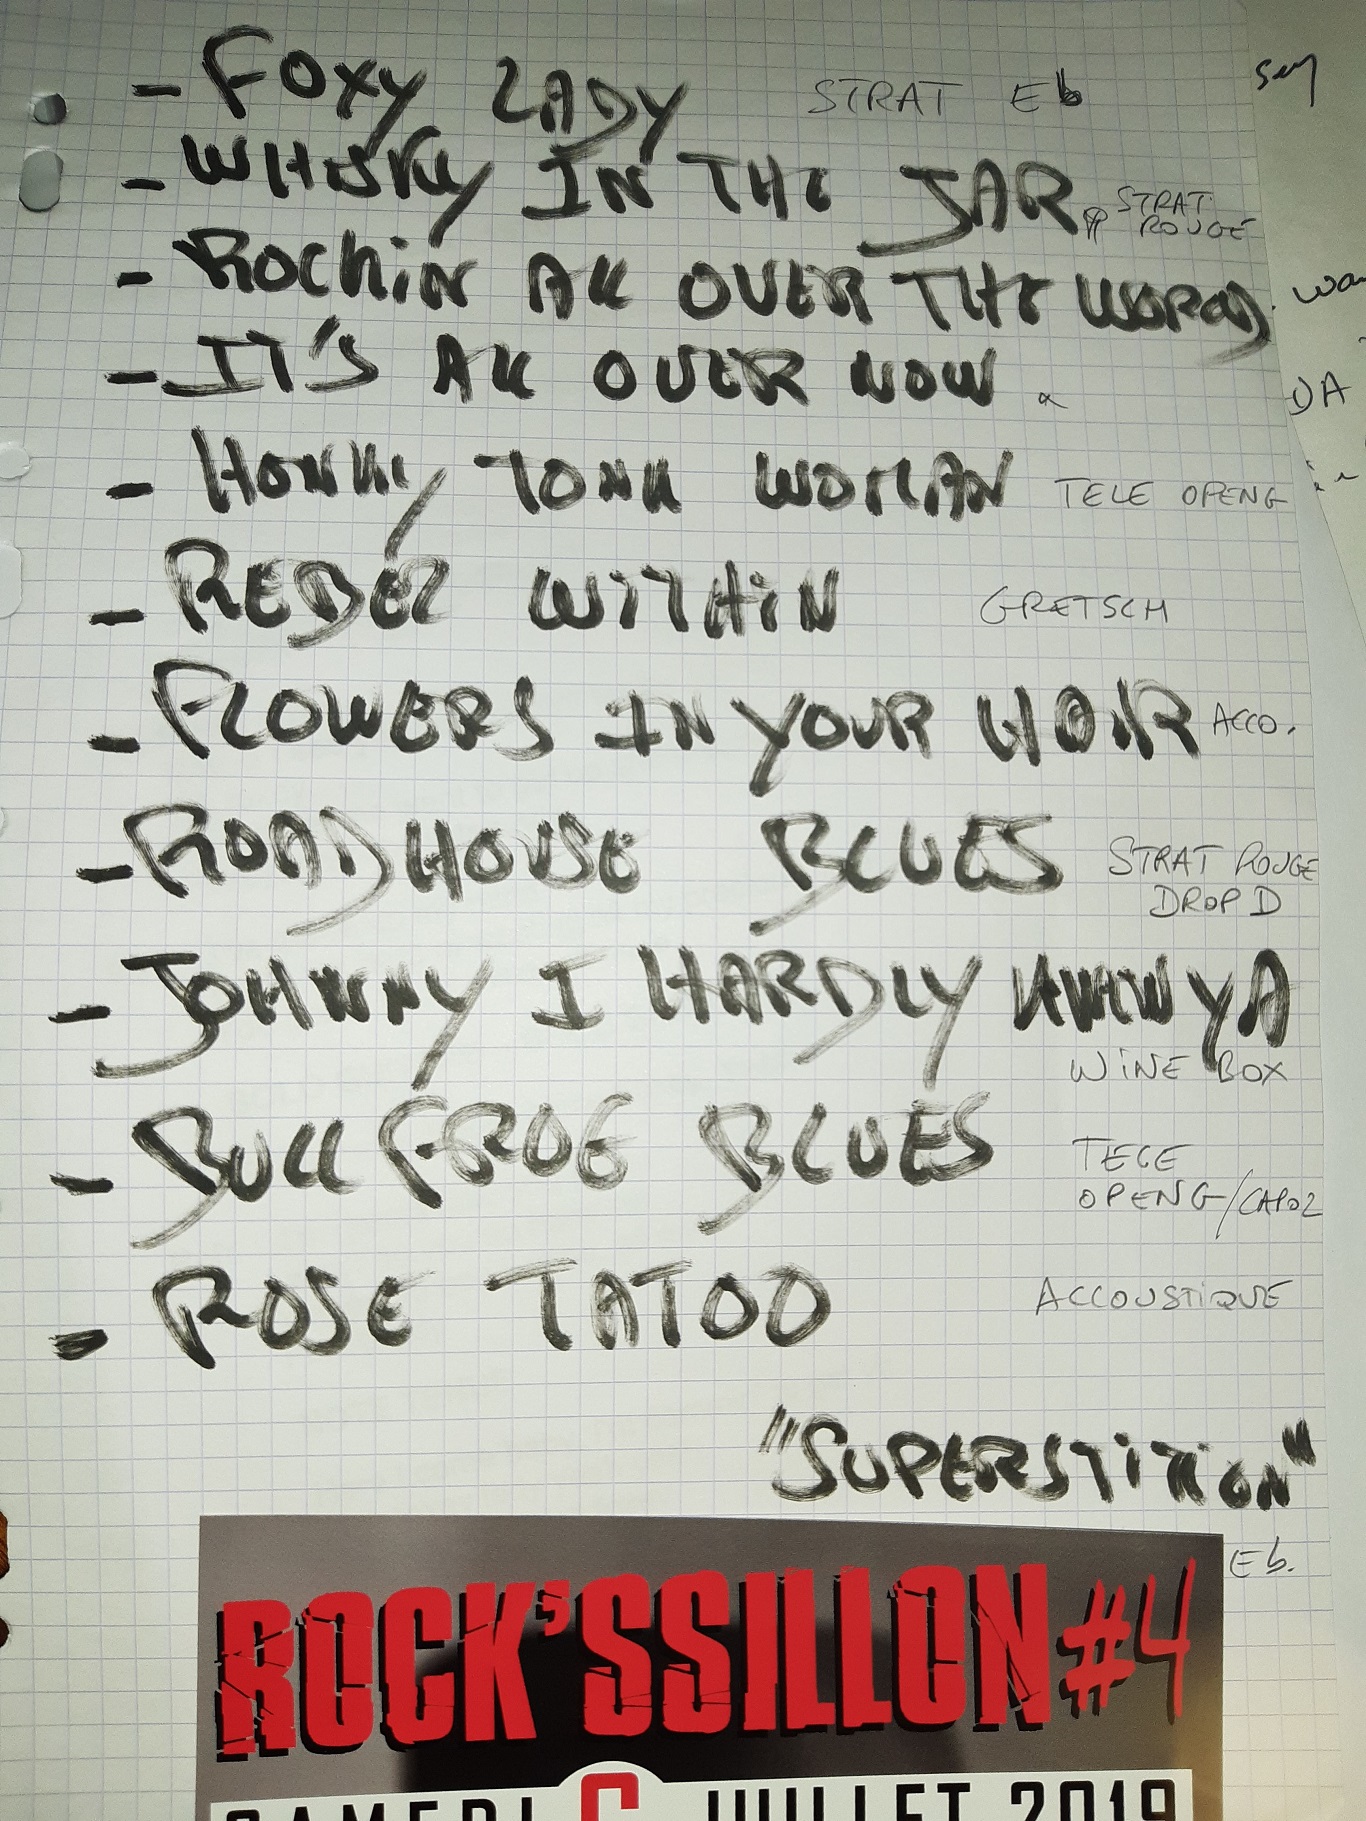 - FOXY LADY STRAT Eb
- WHISKY IN THE JAR STRAT ROUGE
- ROCKIN ALL OVER THE WORLD
- IT'S ALL OVER NOW
- HONKY TONK WOMAN TELE OPENG
- REBEL WITHIN GRETSCH
- FLOWERS IN YOUR HAIR ACCO.
- ROADHOUSE BLUES STRAT ROUGE
DROP D
- JOHNNY I HARDLY KNOW YA
WINE BOX
- BULL FROG BLUES TELE
OPENG/CAPO2
- ROSE TATOO ACCOUSTIQUE
"SUPERSTITION"
Eb.
ROCK'SSILLON #4
SAMEDI 6 JUILLET 2019
DA